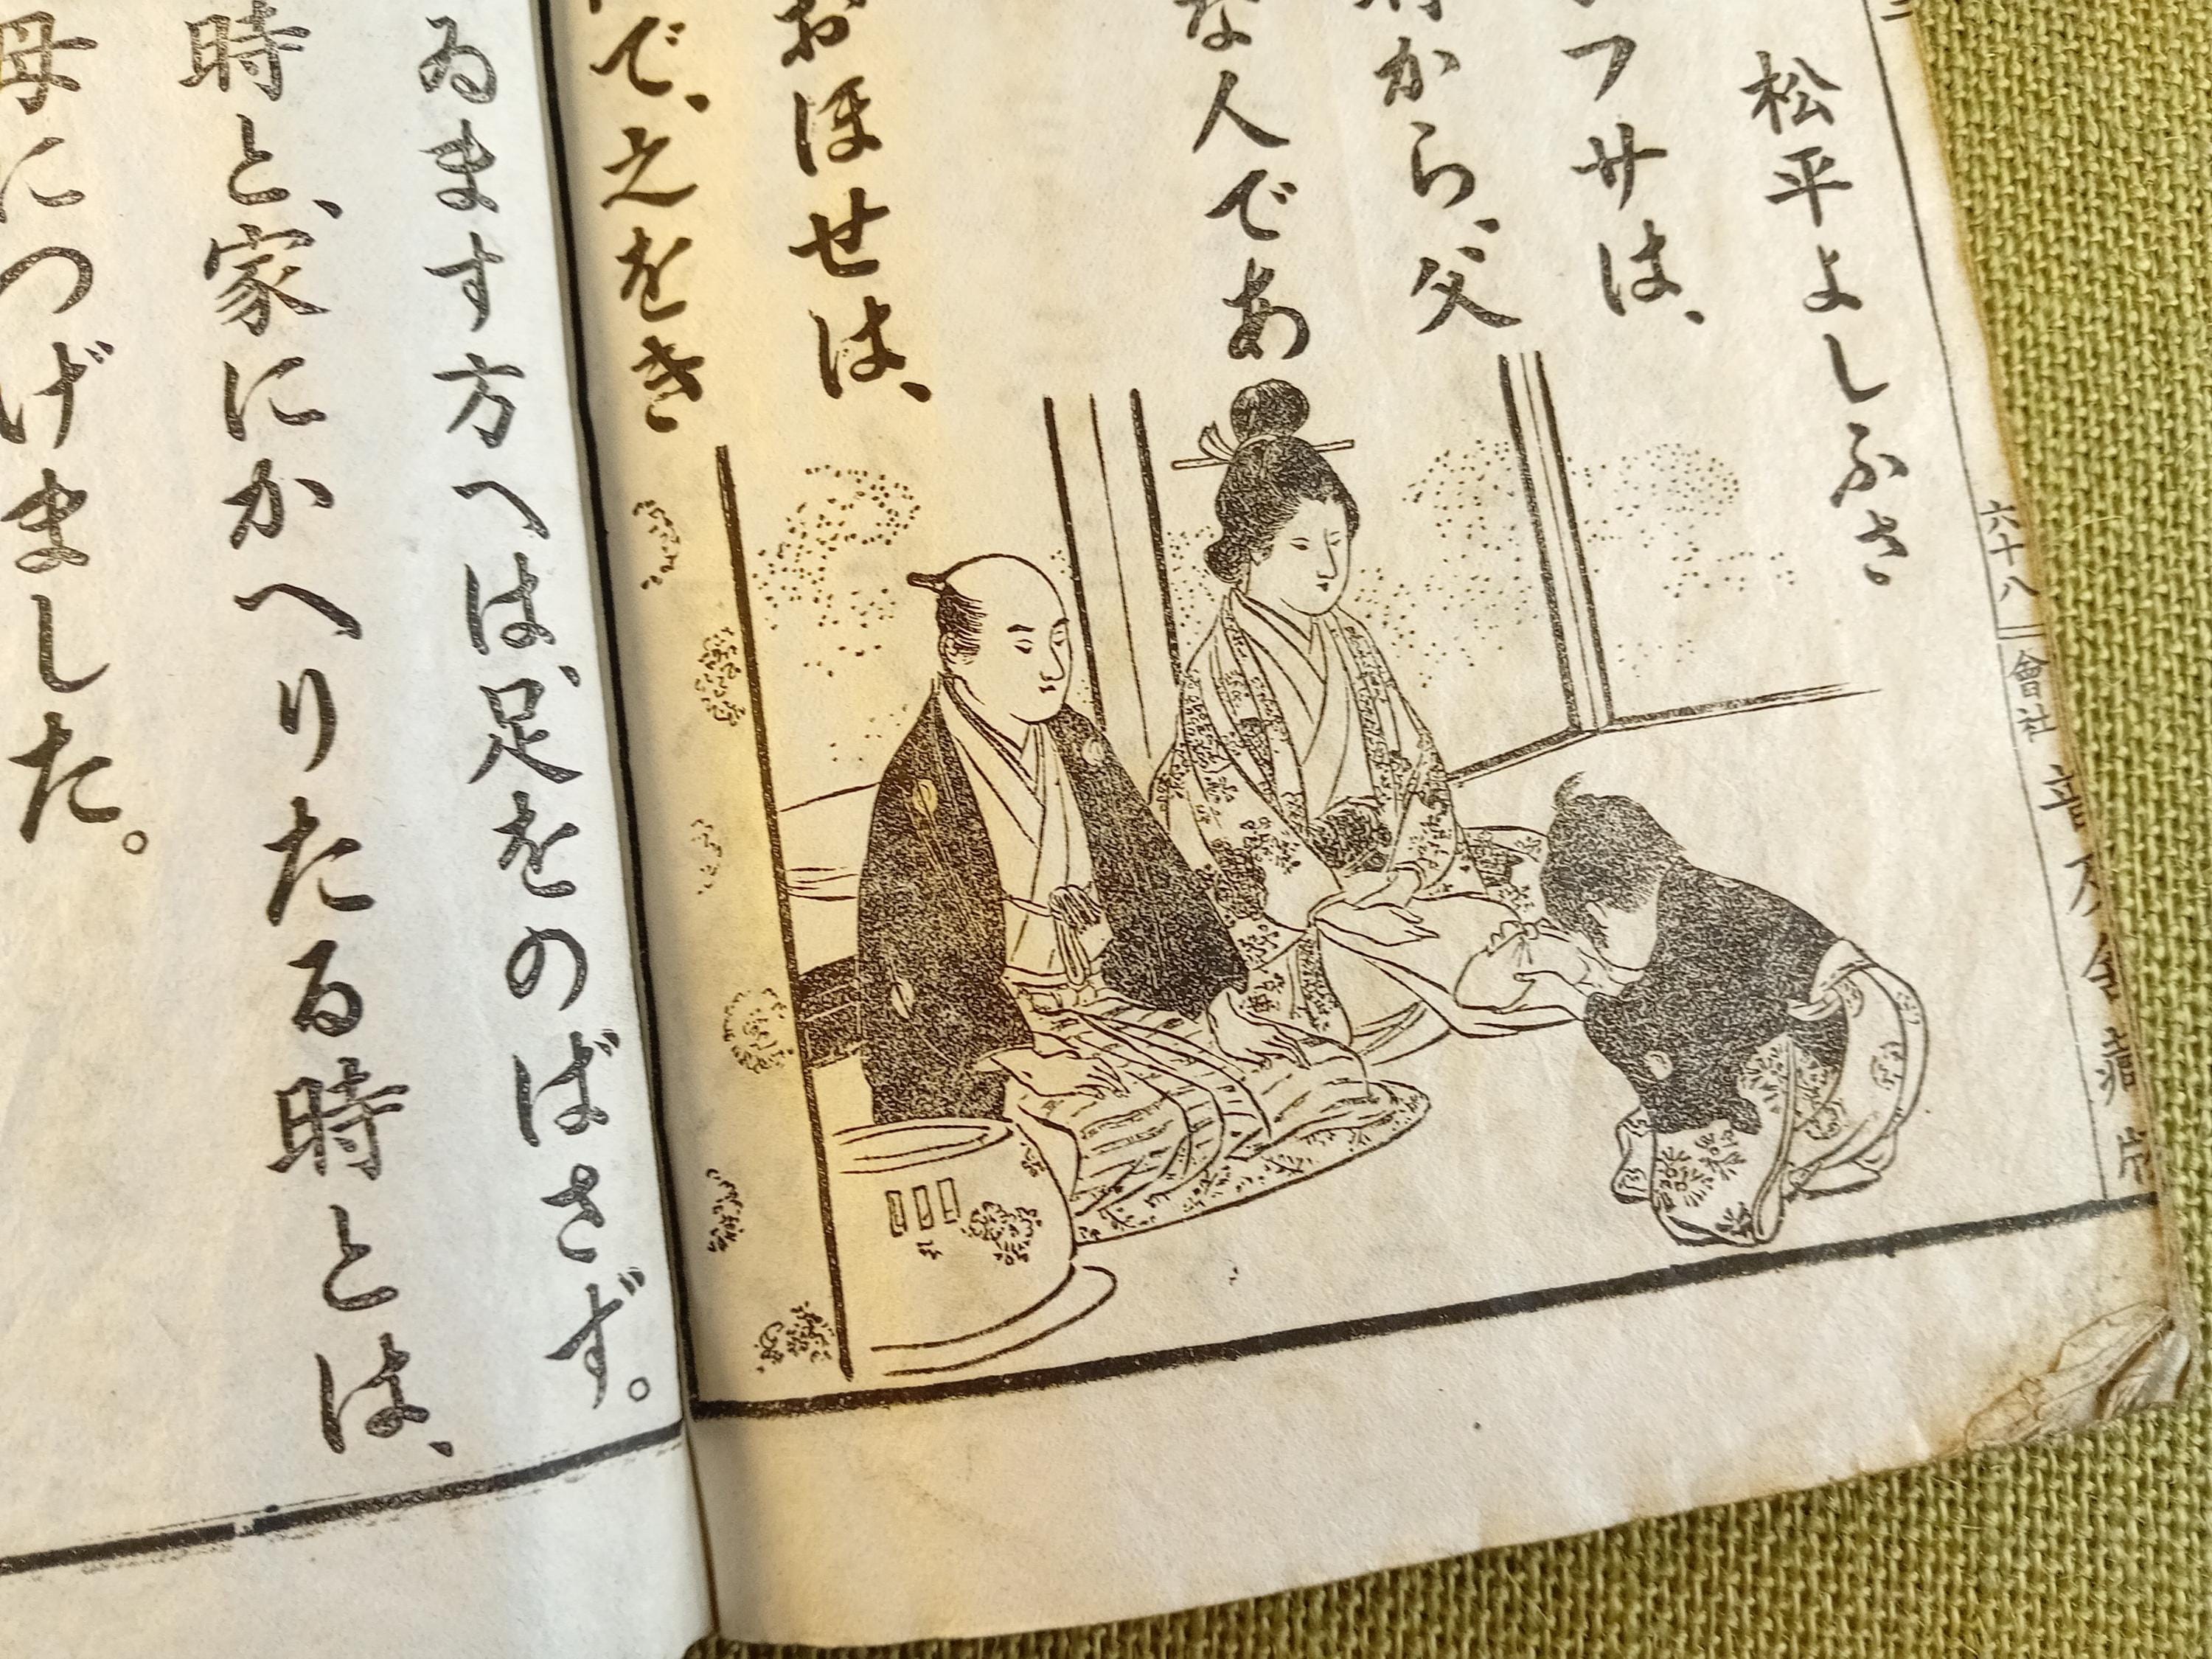 松平よしふさ
フサは、
から、父
な人であ
おほせは、
で、之をき
ゐます方へは、足をのばさず。
時と、家にかへりたる時とは、
母につげました。
六十八
會社